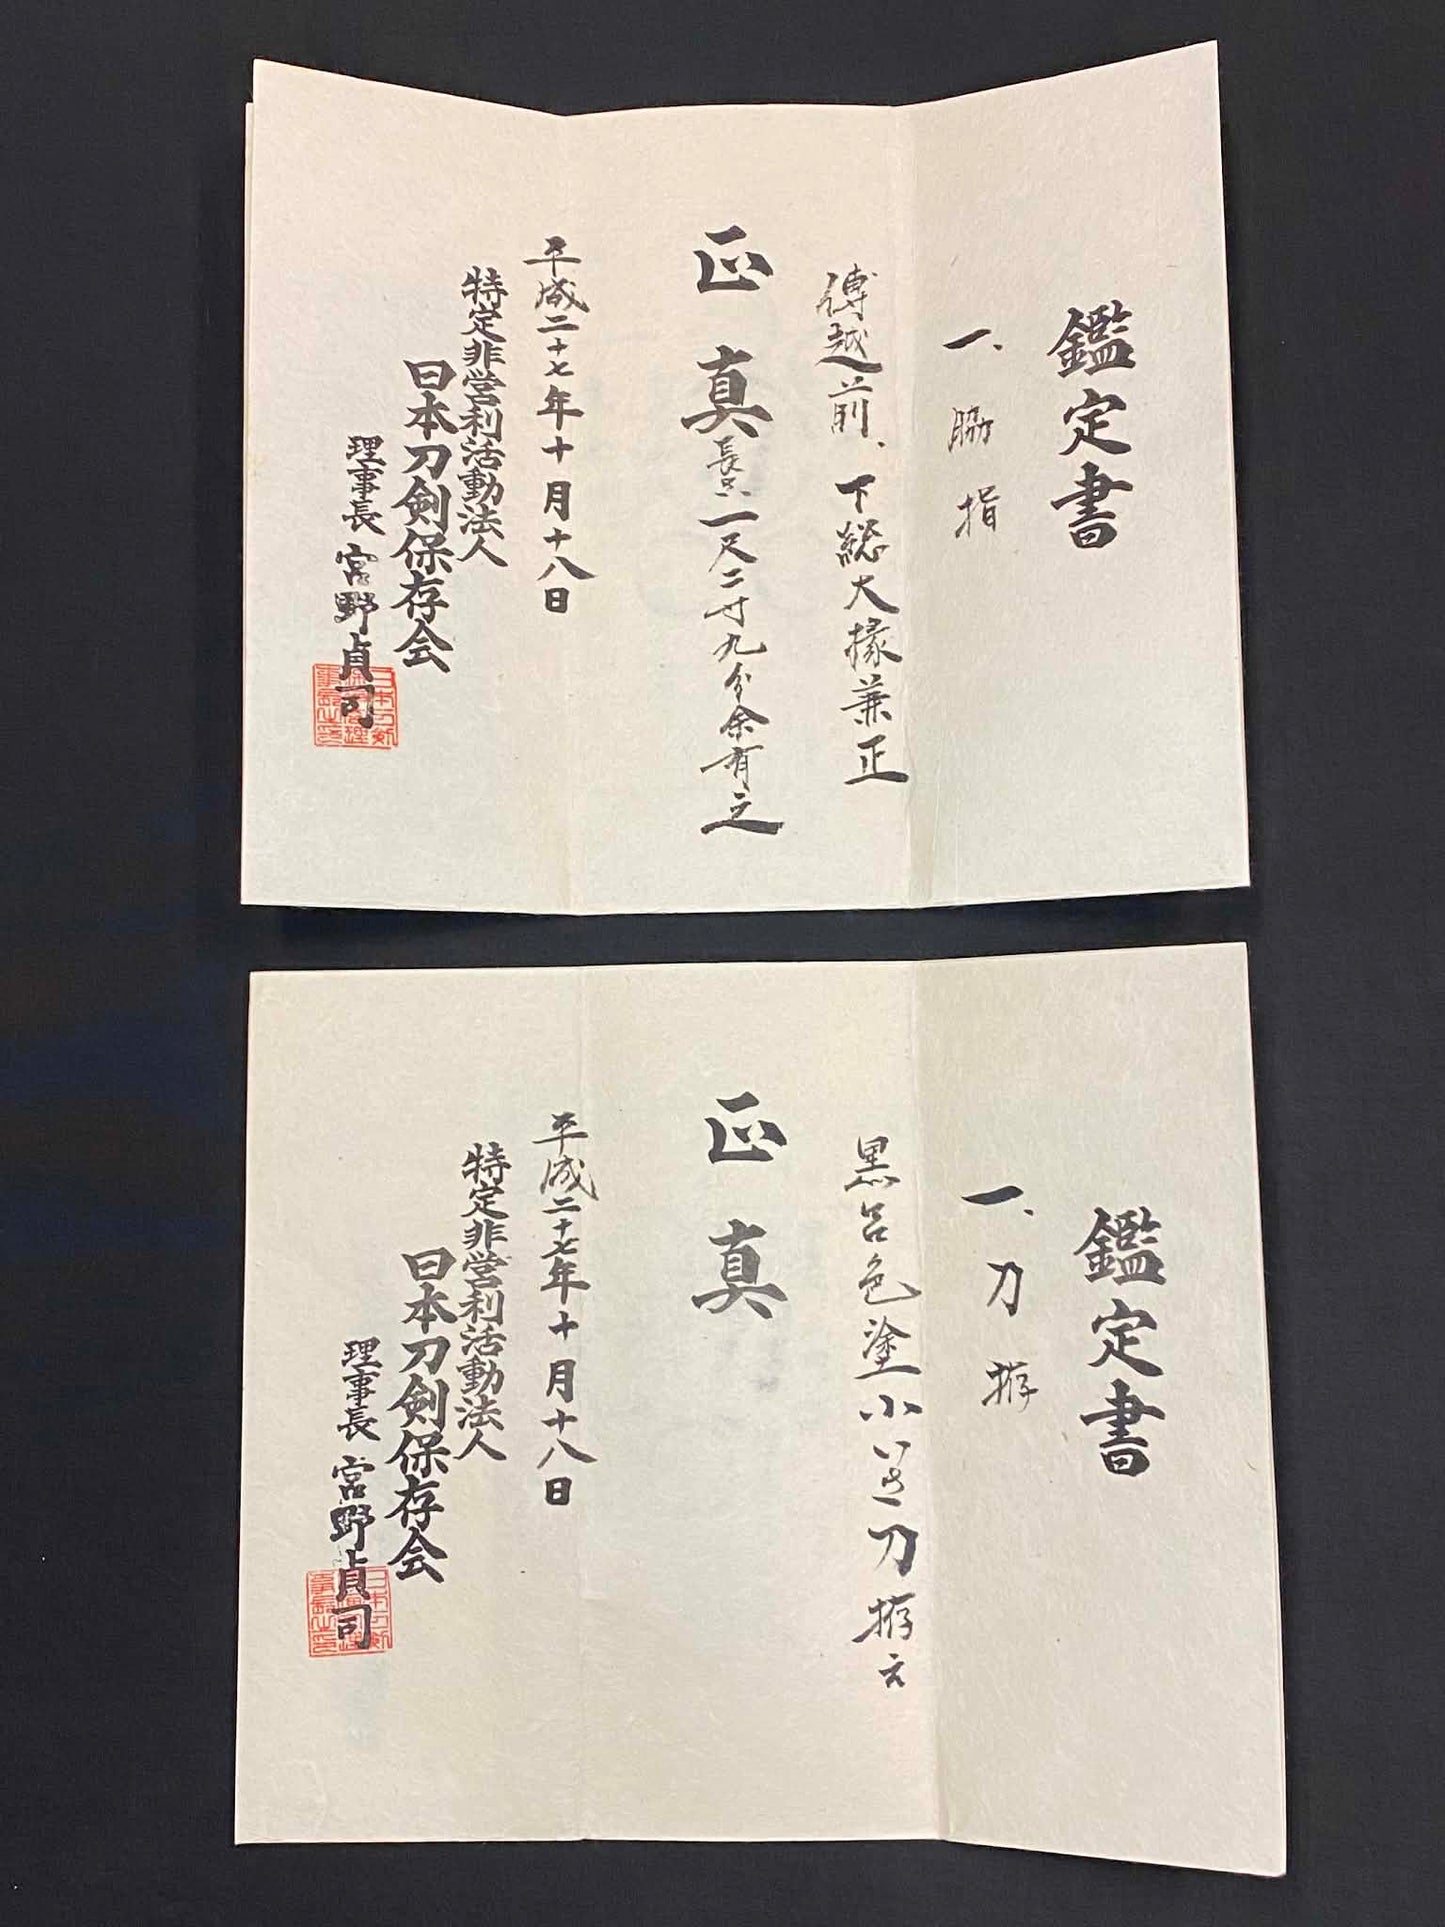 鑑定書
一、脇指
傳越前、下総大掾兼正
正真
長さ一尺二寸九分余有之
平成二十七年十月十八日
特定非営利活動法人
日本刀剣保存会
理事長 宮野貞司
鑑定書
一、刀拵
黒呂色塗小いさ刀拵え
正真
平成二十七年十月十八日
特定非営利活動法人
日本刀剣保存会
理事長 宮野貞司